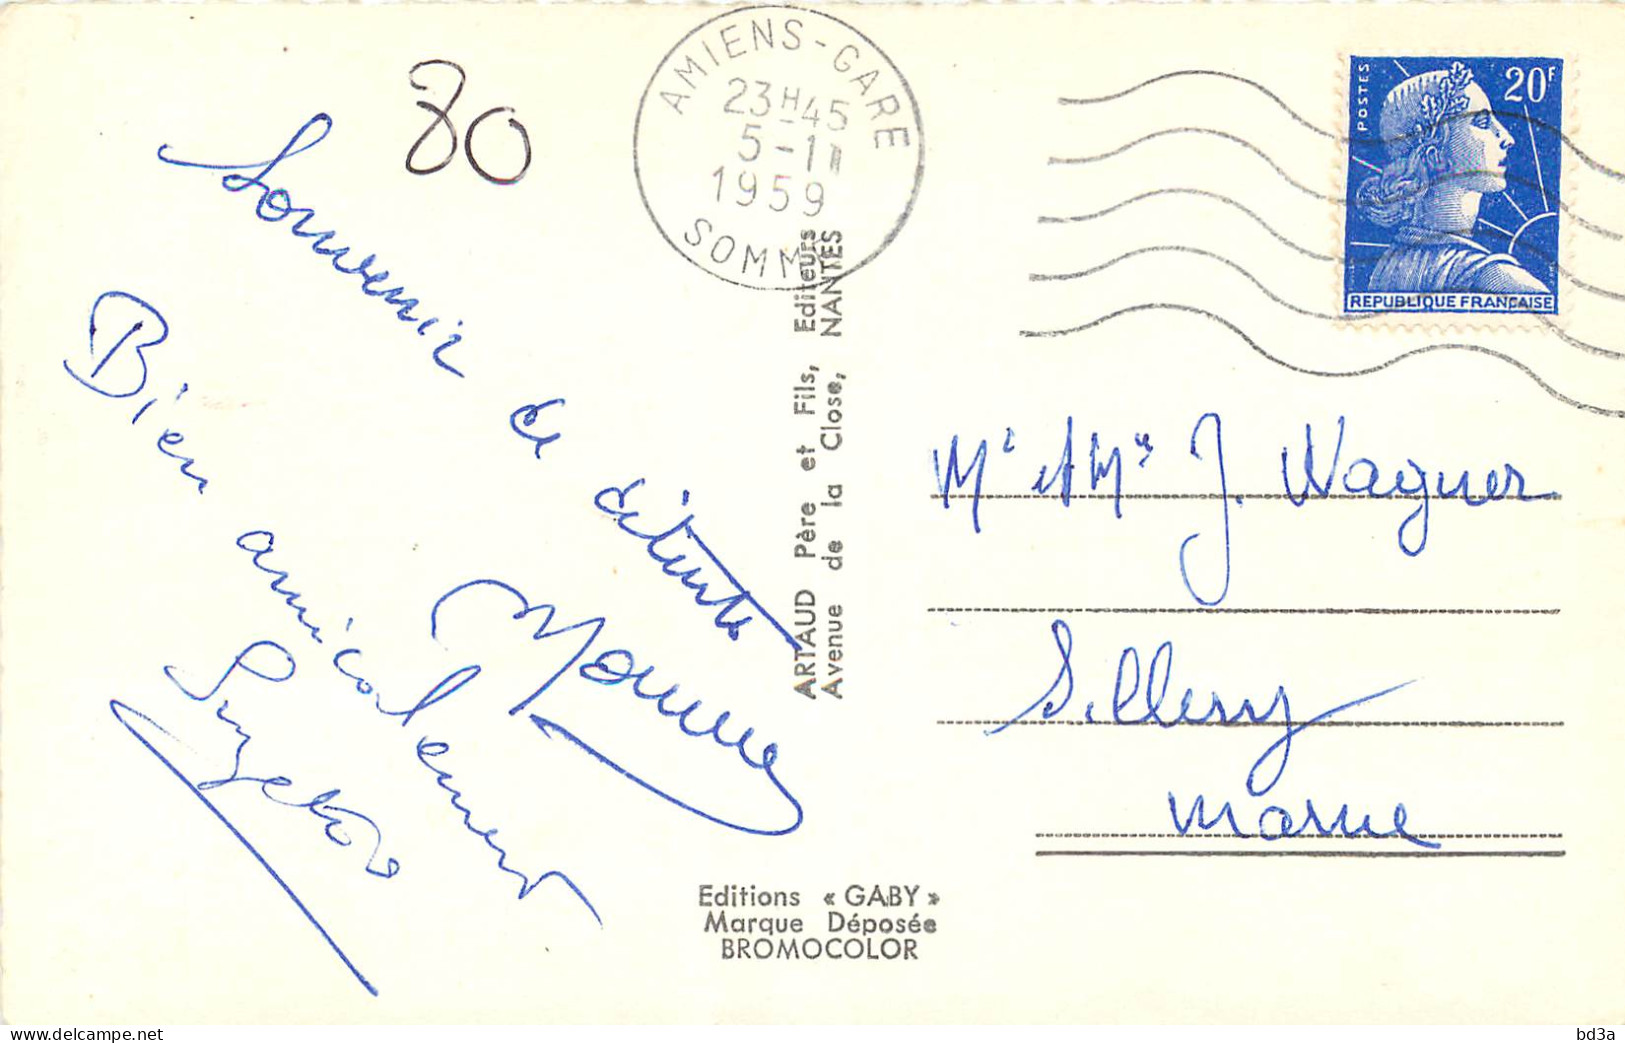 80
AMIENS-GARE
23H45
5-1
1959
SOMME
POSTES
20F
REPUBLIQUE FRANÇAISE
Souvenir de détente
Bien amicalement
ARTAUD Père et Fils, Editeurs
Avenue de la Close, NANTES
Mr et Mme J. Wagner
Sillery
Marne
Editions « GABY »
Marque Déposée
BROMOCOLOR
delcampe.net
bd3a